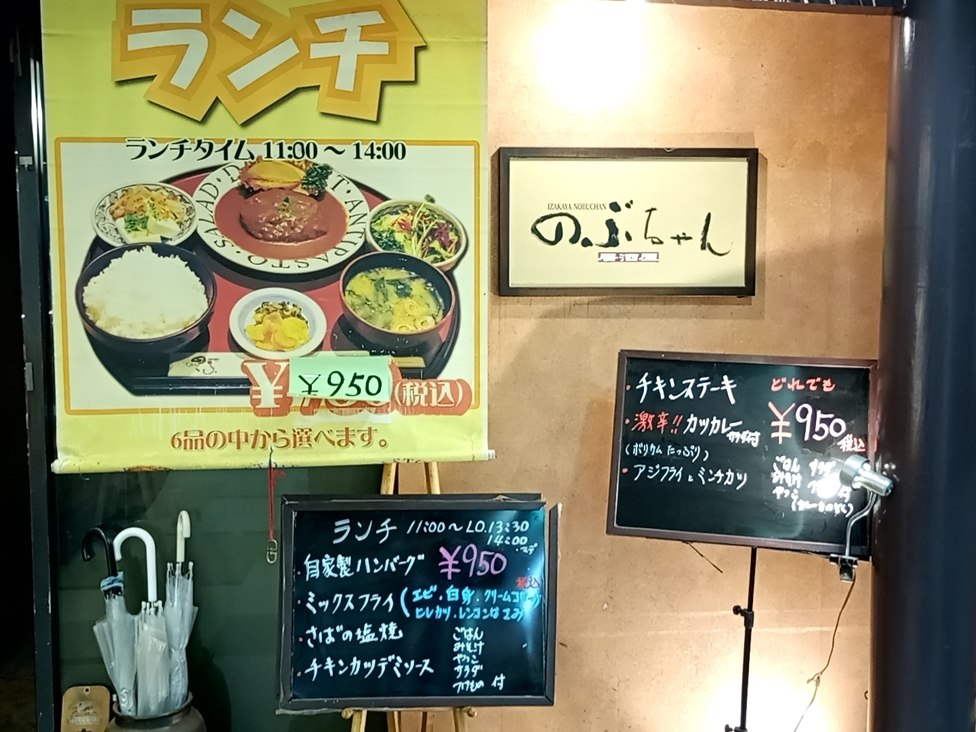 ランチ
ランチタイム 11:00～14:00
SALAD・D
T・ANTIPASTO
のぶ
¥
¥950
(税込)
6品の中から選べます。
IZAKAYA NOBUCHAN
のぶちゃん
居酒屋
・チキンステーキ どれでも
・激辛!!カツカレー ¥950
(ボリウム たっぷり) 税込
・アジフライとミンチカツ
ごはん サラダ
みそ汁
やっこ 付
ランチ 11:00～L.O.13:30
14:00
マデ
・自家製ハンバーグ ¥950
税込
・ミックスフライ(エビ・白身・クリームコロッケ
ヒレカツ・レンコンはさみ)
・さばの塩焼
・チキンカツデミソース
ごはん
みそ汁
やっこ
サラダ
つけもの 付